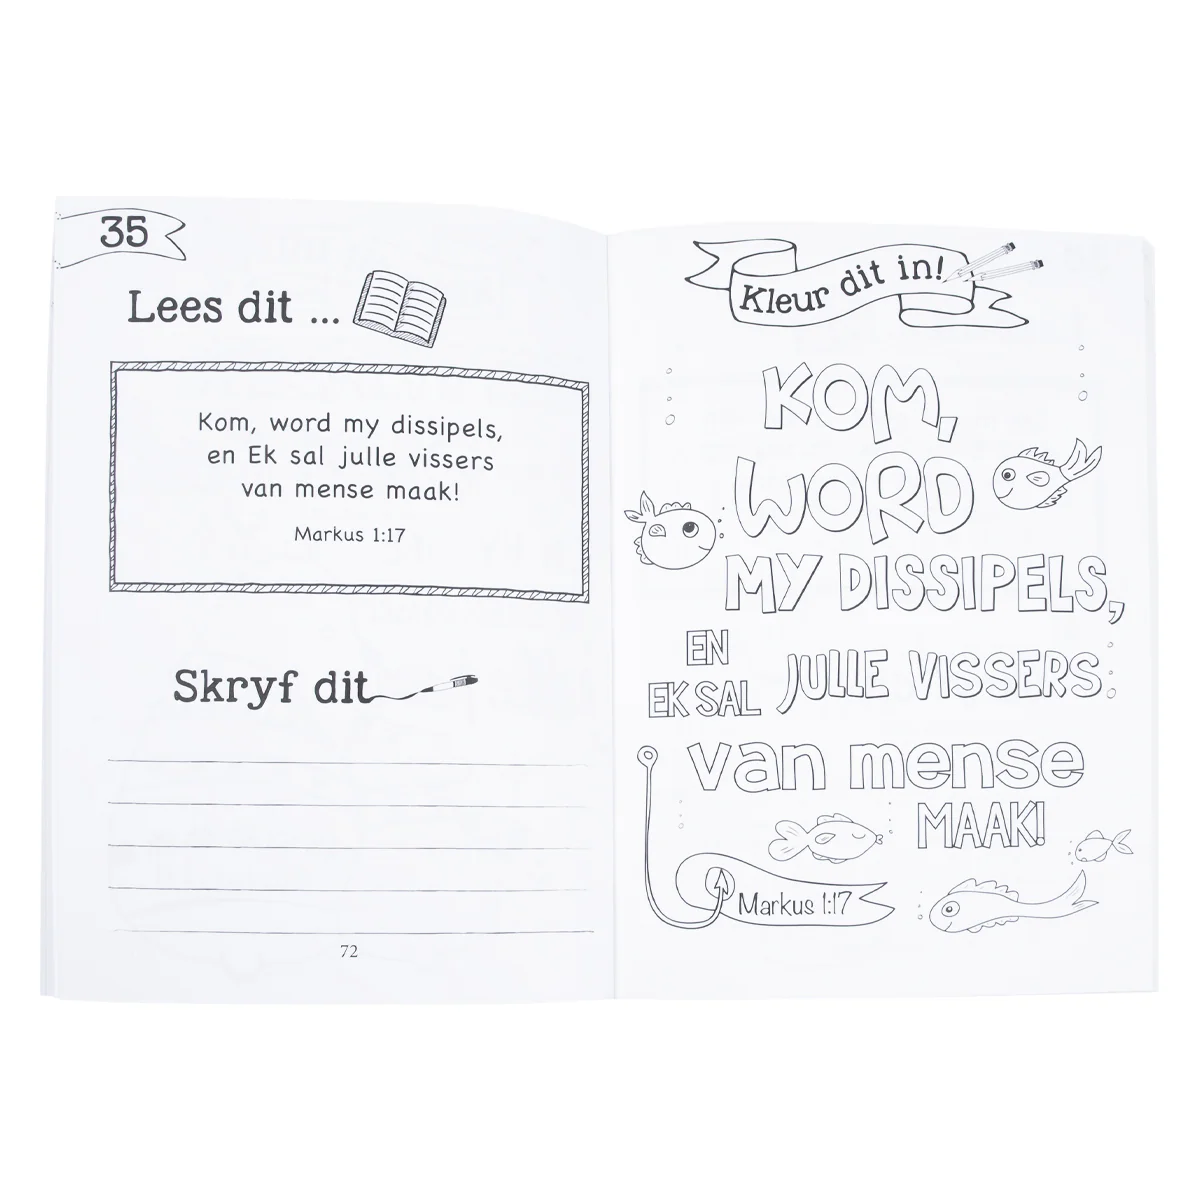 35
Lees dit ...
Kom, word my dissipels,
en Ek sal julle vissers
van mense maak!
Markus 1:17
Skryf dit
72
Kleur dit in!
KOM,
WORD
MY DISSIPELS,
EN
EK SAL
JULLE VISSERS
van mense
MAAK!
Markus 1:17